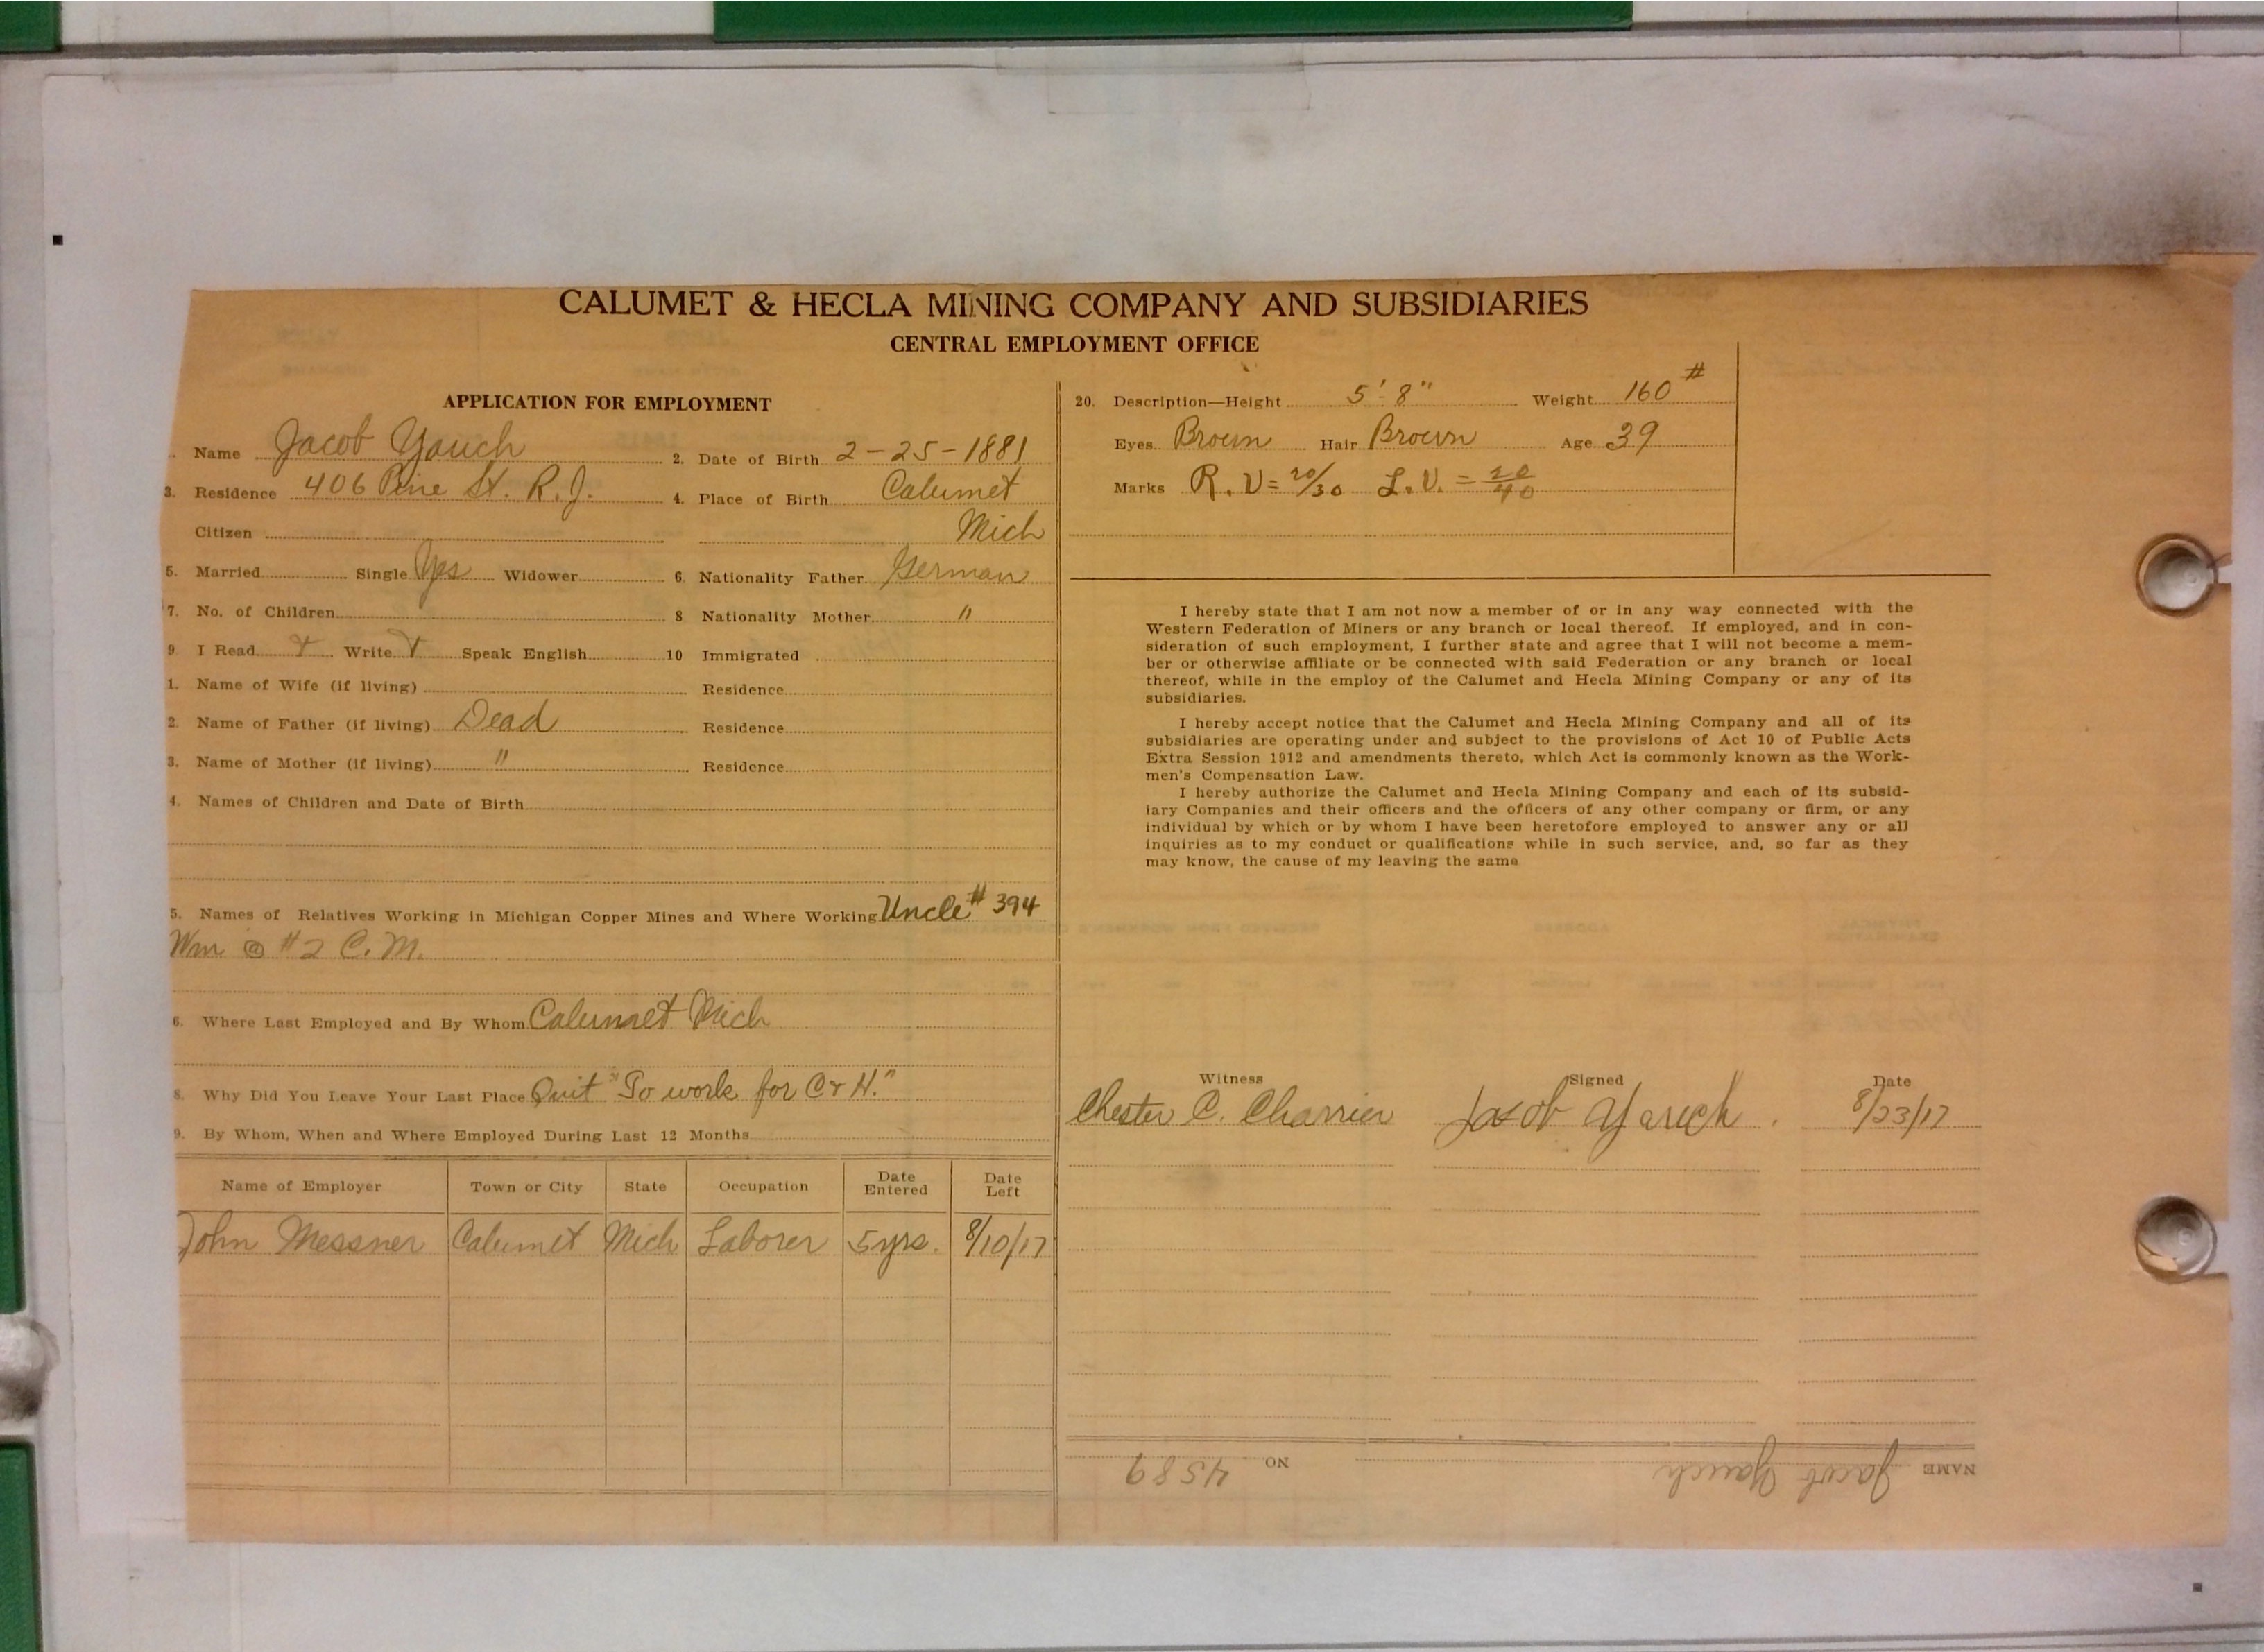 CALUMET & HECLA MINING COMPANY AND SUBSIDIARIES
CENTRAL EMPLOYMENT OFFICE
APPLICATION FOR EMPLOYMENT
Name Jacob Yauch 2. Date of Birth 2-25-1881
3. Residence 406 Pine St. R.J. 4. Place of Birth Calumet
Citizen Mich
5. Married Single Yes Widower 6. Nationality Father German
7. No. of Children 8 Nationality Mother "
9. I Read Write Speak English 10 Immigrated
1. Name of Wife (if living) Residence
2. Name of Father (if living) Dead Residence
3. Name of Mother (if living) " Residence
4. Names of Children and Date of Birth
5. Names of Relatives Working in Michigan Copper Mines and Where Working Uncle #394
Wm @ #2 C. M.
6. Where Last Employed and By Whom Calumet Mich
8. Why Did You Leave Your Last Place Quit "To work for C & H."
9. By Whom, When and Where Employed During Last 12 Months
Name of Employer Town or City State Occupation Date Entered Date Left
John Messner Calumet Mich Laborer 5 yrs. 8/10/17
20. Description—Height 5'-8" Weight 160#
Eyes Brown Hair Brown Age 39
Marks R. V = 20/30 L. V. = 20/40
I hereby state that I am not now a member of or in any way connected with the
Western Federation of Miners or any branch or local thereof. If employed, and in con-
sideration of such employment, I further state and agree that I will not become a mem-
ber or otherwise affiliate or be connected with said Federation or any branch or local
thereof, while in the employ of the Calumet and Hecla Mining Company or any of its
subsidiaries.
I hereby accept notice that the Calumet and Hecla Mining Company and all of its
subsidiaries are operating under and subject to the provisions of Act 10 of Public Acts
Extra Session 1912 and amendments thereto, which Act is commonly known as the Work-
men's Compensation Law.
I hereby authorize the Calumet and Hecla Mining Company and each of its subsid-
iary Companies and their officers and the officers of any other company or firm, or any
individual by which or by whom I have been heretofore employed to answer any or all
inquiries as to my conduct or qualifications while in such service, and, so far as they
may know, the cause of my leaving the same
Witness Signed Date
Chester C. Charrier Jacob Yauch. 8/23/17
NAME Jacob Yauch NO 4589